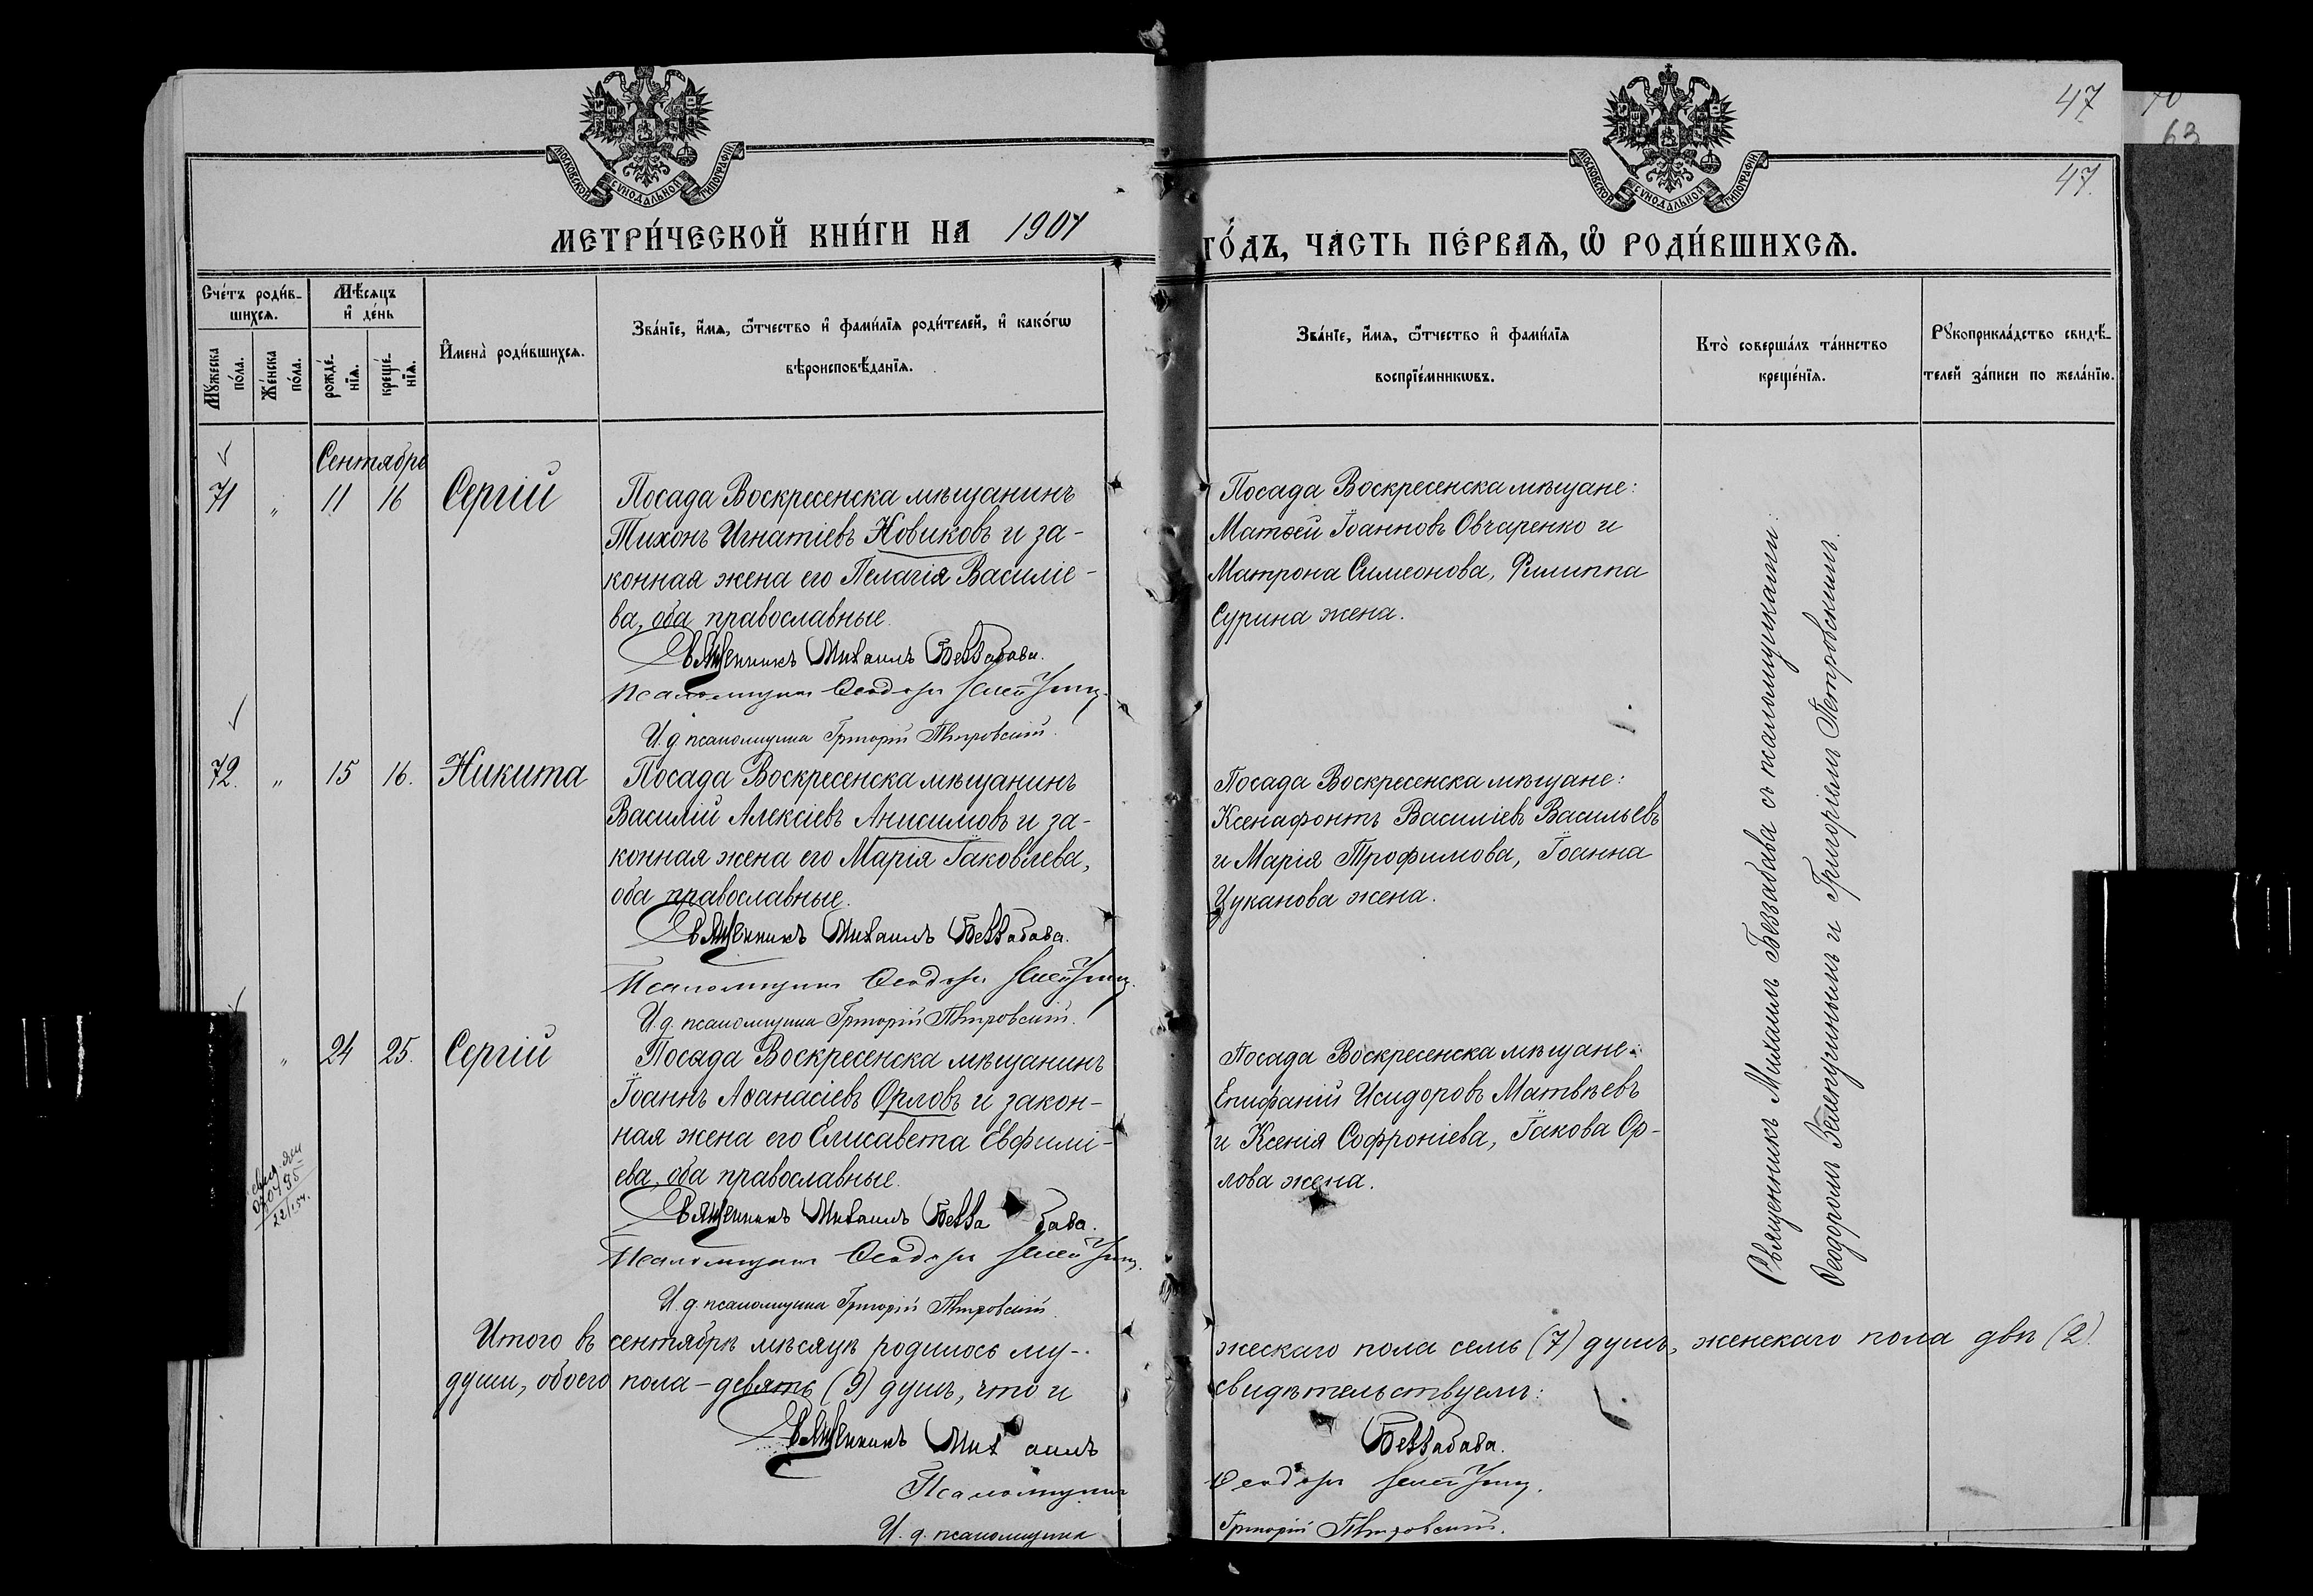 МОСКОВСКОЙ СУНОДАЛЬНОЙ ТИПОГРАФІИ
МОСКОВСКОЙ СУНОДАЛЬНОЙ ТИПОГРАФІИ
47
63
47.
МЕТРИ́ЧЕСКОЙ КНИ́ГИ НА 1907
ГО́ДЪ, ЧА́СТЬ ПЕ́РВАѦ, Ѽ РОДИ́ВШИХСѦ.
Сче́тъ роди́в-
шихсѧ.
Мꙋ́жеска
по́ла.
Же́нска
по́ла.
Мѣ́сѧцъ
и҆ де́нь
рожде́-
нїѧ.
креще́-
нїѧ.
И҆мена̀ роди́вшихсѧ.
Зва́нїе, и҆́мѧ, ѻ҆́тчество и҆ фами́лїѧ роди́телей, и҆ како́гѡ
вѣроисповѣ́данїѧ.
Зва́нїе, и҆́мѧ, ѻ҆́тчество и҆ фами́лїѧ
воспрїе́мникѡвъ.
Кто̀ соверша́лъ та́инство
креще́нїѧ.
Рꙋкоприкла́дство свидѣ́-
телей за́писи по жела́нїю.
Сентябрь
71 " 11 16 Сергій
Посада Воскресенска мѣщанинъ
Тихонъ Игнатіевъ Новиковъ и за-
конная жена его Пелагія Василіе-
ва, оба православные.
Священникъ Михаилъ Беззабава.
Псаломщикъ Ѳеодоръ
И. д. псаломщика Григорій Петровскій.
Посада Воскресенска мѣщане:
Матѳей Іоанновъ Овчаренко и
Матрона Симеонова, Филиппа
Сурина жена.
72. " 15 16. Никита
Посада Воскресенска мѣщанинъ
Василій Алексіевъ Анисимовъ и за-
конная жена его Марія Іаковлева,
оба православные.
Священникъ Михаилъ Беззабава.
Псаломщикъ Ѳеодоръ
И. д. псаломщика Григорій Петровскій.
Посада Воскресенска мѣщане:
Ксенафонтъ Василіевъ Васильевъ
и Марія Трофимова, Іоанна
Цуканова жена.
" 24 25. Сергій
Посада Воскресенска мѣщанинъ
Іоаннъ Аѳанасіевъ Орловъ и закон-
ная жена его Елисавета Евфимі-
ева, оба православные.
Священникъ Михаилъ Беззабава.
Псаломщикъ Ѳеодоръ
И. д. псаломщика Григорій Петровскій.
Посада Воскресенска мѣщане:
Епифаній Исидоровъ Матвѣевъ
и Ксенія Софроніева, Іакова Ор-
лова жена.
Священникъ Михаилъ Беззабава съ псаломщиками:
Ѳеодоромъ и Григоріемъ Петровскимъ.
Итого въ сентябрѣ мѣсяцѣ родилось му-
жескаго пола семь (7) душъ, женскаго пола двѣ (2)
души, обоего пола – девять (9) душъ, что и
свидѣтельствуемъ:
Священникъ Михаилъ
Беззабава.
Псаломщикъ
Ѳеодоръ
И. д. псаломщика
Григорій Петровскій.